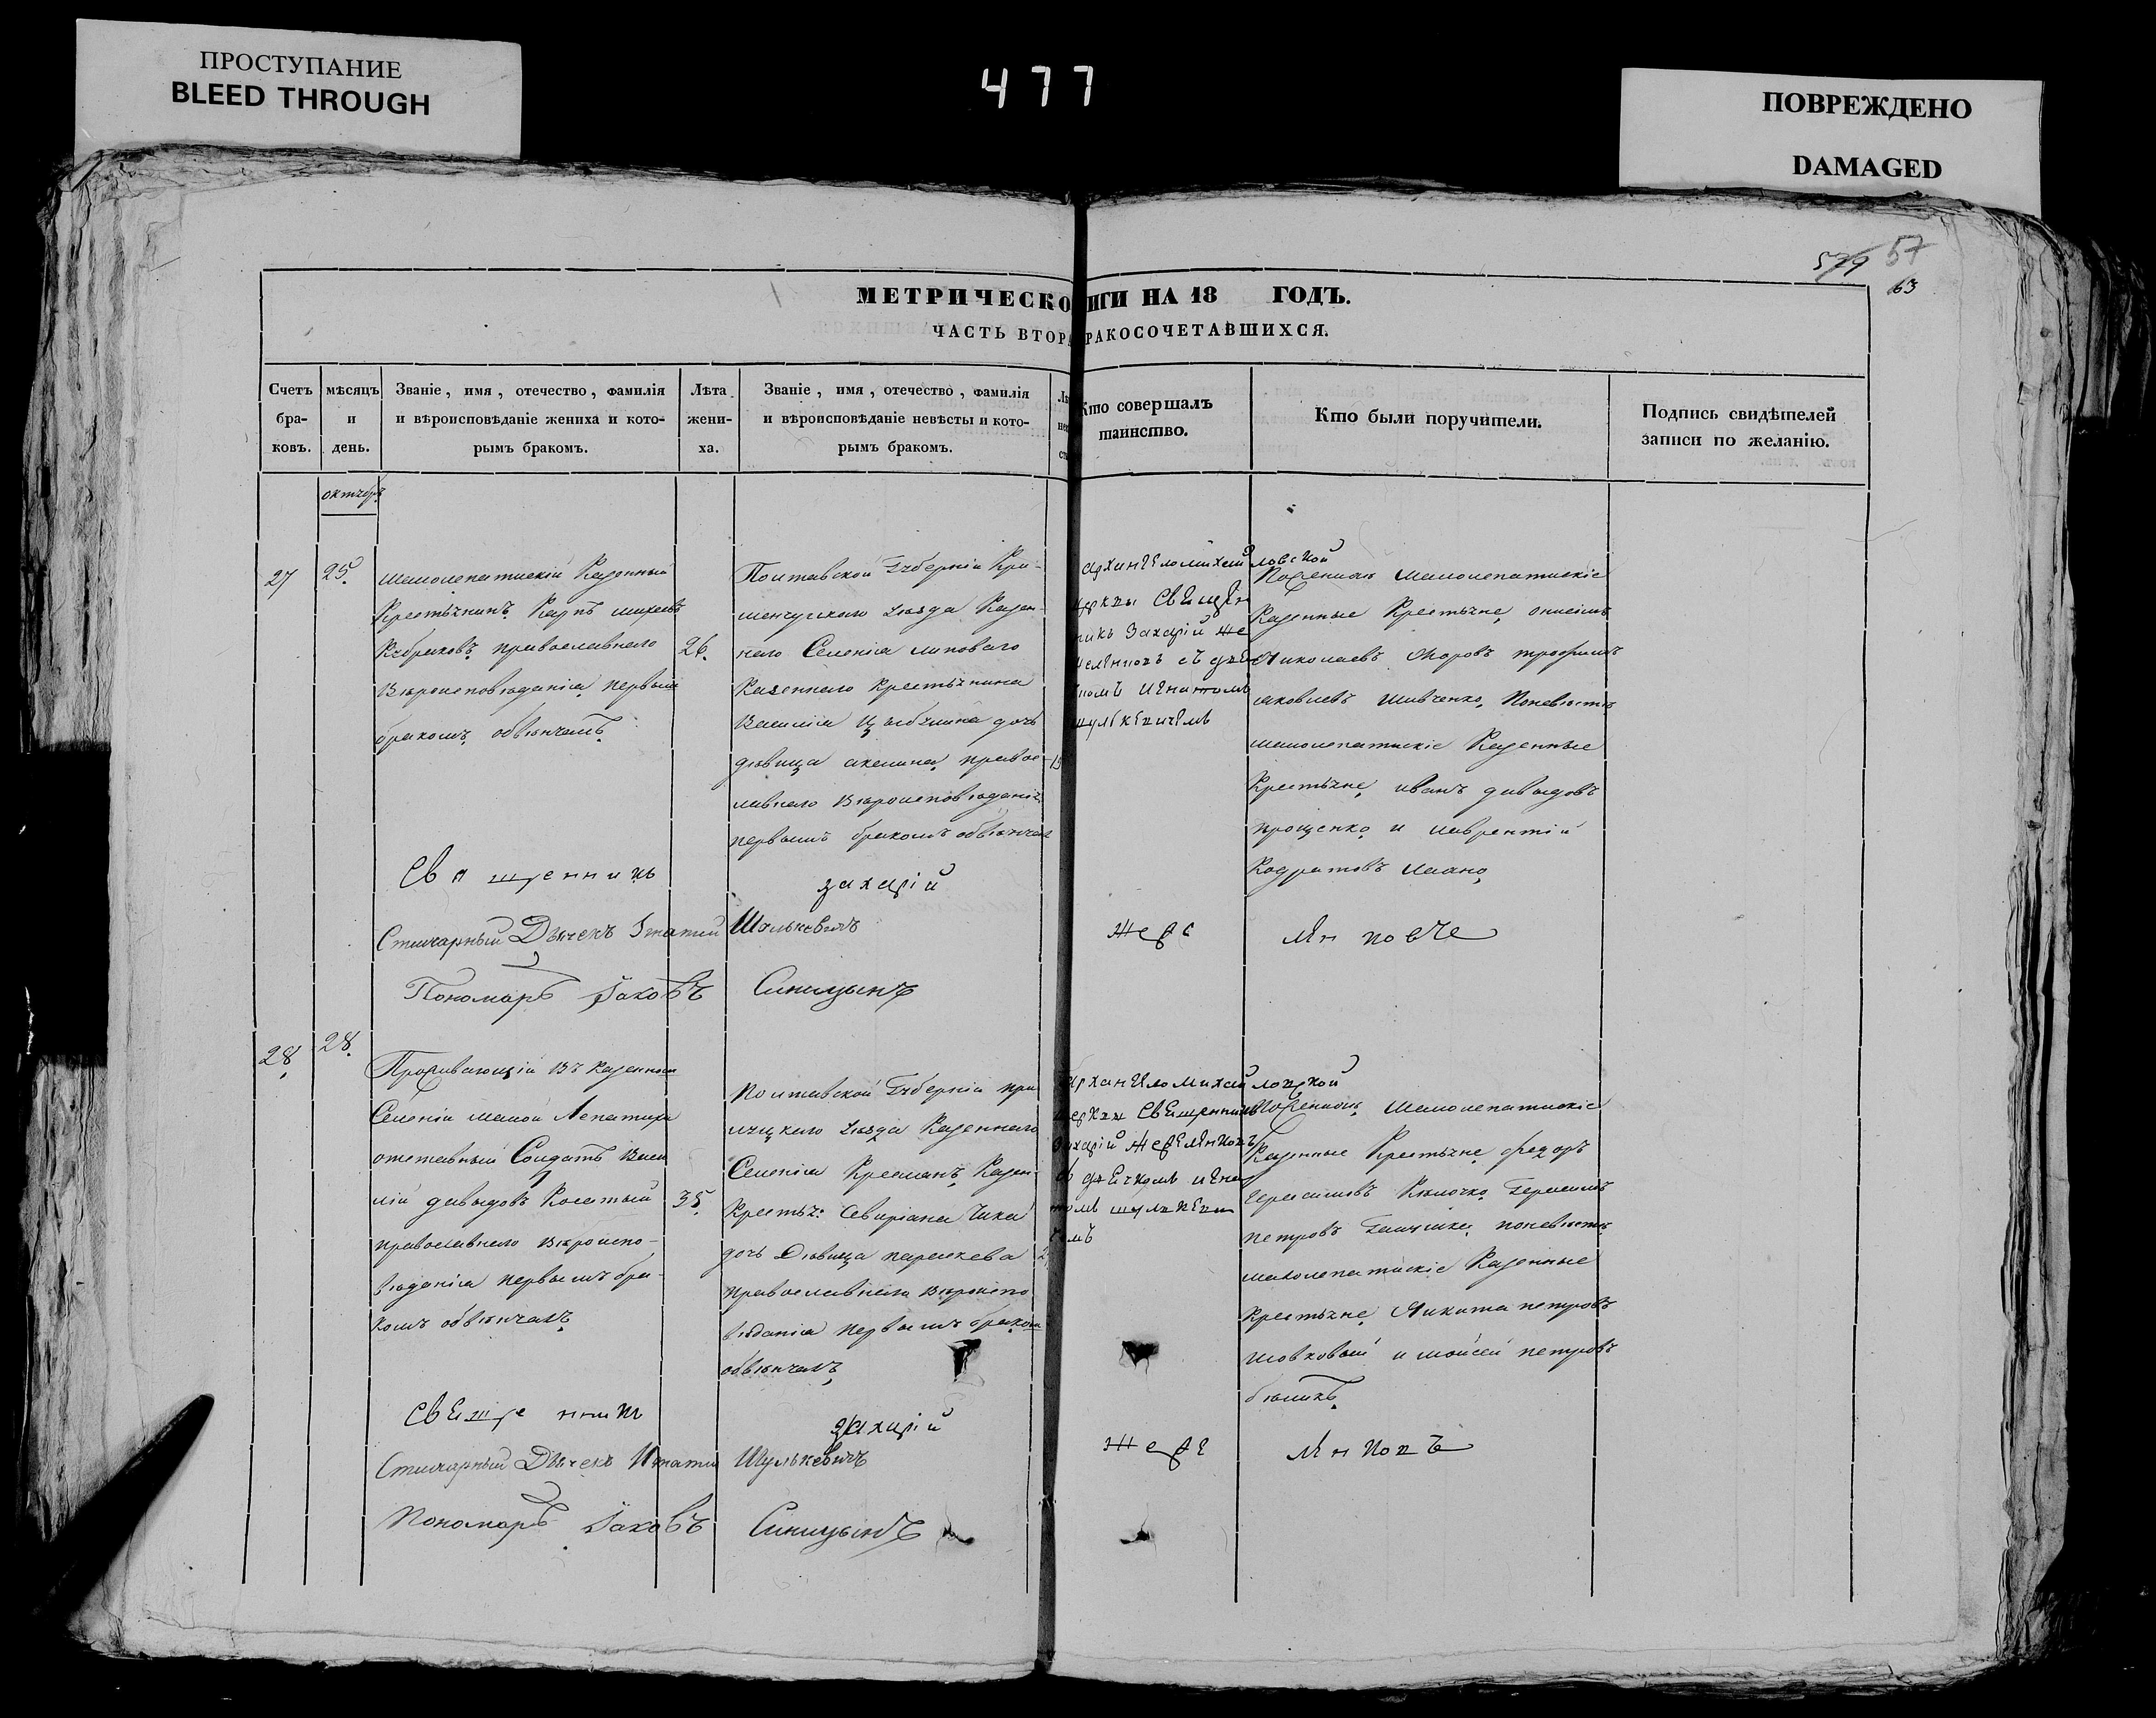 ПРОСТУПАНИЕ
BLEED THROUGH
477
ПОВРЕЖДЕНО
DAMAGED
579 57
63
МЕТРИЧЕСКО ИГИ НА 18 ГОДЪ.
ЧАСТЬ ВТОРА РАКОСОЧЕТАВШИХСЯ.
Счетъ бра- ковъ.
мѣсяцъ и день.
Званіе, имя, отечество, фамилія
и вѣроисповѣданіе жениха и кото-
рымъ бракомъ.
Лѣта жени- ха.
Званіе, имя, отечество, фамилія
и вѣроисповѣданіе невѣсты и кото-
рымъ бракомъ.
Кто совершалъ
таинство.
Кто были поручители.
Подпись свидѣтелей
записи по желанію.
октябрь
27
25.
малолепатискій Казенный
Крестьянинъ Карпъ михеевъ
православнаго
вѣроисповѣданія первымъ
бракомъ обвѣнчанъ
26.
Полтавской Губерніи Кре-
менчугскаго уѣзда Казен-
наго Селенія липоваго
Казеннаго крестьянина
Василія дочь
дѣвица акилина православ-
лавнаго вѣроисповѣданія
первымъ бракомъ обвѣнчана
архангеломихайловской
церквы Священ
никъ Захарій Же
мелянковъ съ дья
комъ игнатомъ
шулькевичемъ
Поженихѣ малолепатискіе
Казенные Крестьяне, онисимъ
Николаевъ трофимъ
яковлевъ Шевченко, Поневѣстѣ
малолепатискіе Казенные
Крестьяне, иванъ давыдовъ
прощенко и лаврентій
Кодратовъ
Священникъ захарій
Стихарный Дьячекъ Игнатий Шулькевичъ
Пономарь Іаковъ Синицынъ
28
28.
Проживающій въ казенномъ
Селеніи малой Лепатихи
отставный Солдатъ Васи
лій давыдовъ Косатый
православнаго вѣроиспо-
вѣданія первымъ бра-
комъ обвѣнчанъ
35.
Полтавской Губерніи при
луцкаго уѣзда Казеннаго
Селенія Казен-
Крестья: Севиріана Чика
дочь Дѣвица параскева
православнаго вѣроиспо
вѣданія первымъ бракомъ
обвѣнчанъ
архангеломихайловской
церквы Священникъ
Захарій
съ дьячкомъ игна
томъ шулькеви
чемъ
Поженихѣ, малолепатискіе
Казенные Крестьяне, федоръ
Герасимовъ Клочко, Герасимъ
петровъ поневѣстѣ
малолепатискіе Казенные
крестьяне, Никита петровъ
шовковый и мойсей петровъ
бѣликъ
Священникъ захарій
Стихарный Дьячекъ Игнатий Шулькевичъ
Пономарь Іаковъ Синицынъ